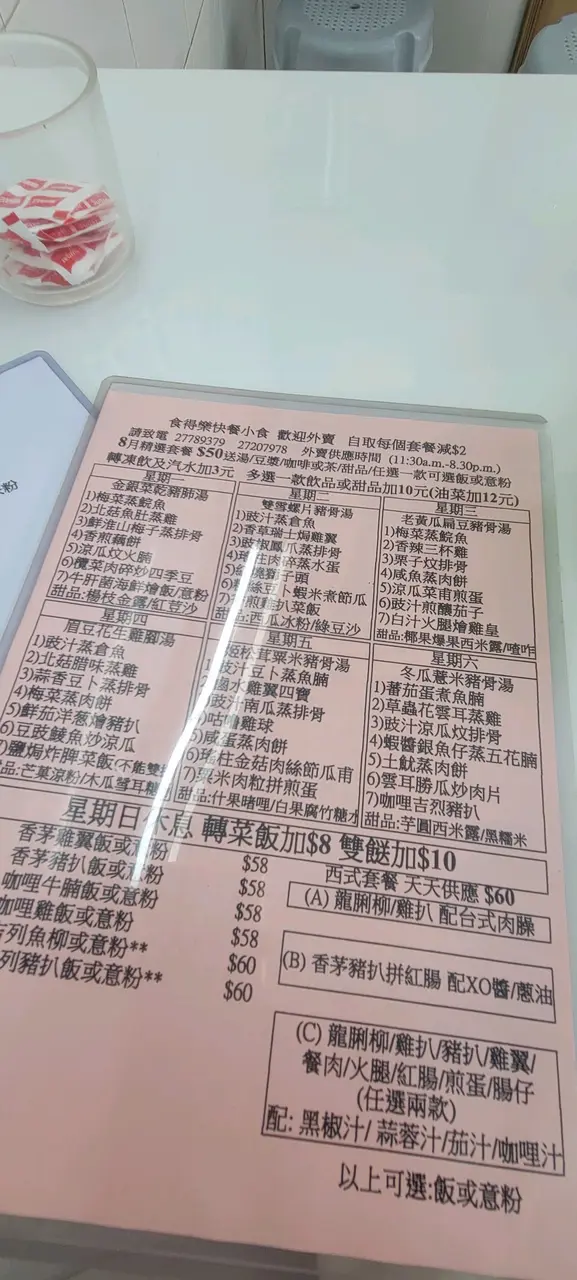 食得樂快餐小食 歡迎外賣 自取每個套餐減$2
請致電 27789379 27207978 外賣供應時間 (11:30a.m.-8.30p.m.)
8月精選套餐 $50送湯/豆漿/咖啡或茶/甜品/任選一款可選飯或意粉
轉凍飲及汽水加3元 多選一款飲品或甜品加10元(油菜加12元)
星期一
金銀菜乾豬肺湯
1)梅菜蒸鯇魚
2)北菇魚肚蒸雞
3)鮮淮山梅子蒸排骨
4)香煎藕餅
5)涼瓜炆火腩
6)欖菜肉碎炒四季豆
7)牛肝菌海鮮燴飯/意粉
甜品:楊枝金露/紅荳沙
星期二
雙雪螺片豬骨湯
1)豉汁蒸倉魚
2)香草瑞士焗雞翼
3)豉椒鳳爪蒸排骨
4)柱肉碎蒸水蛋
5)獅子頭
6)粉絲豆卜蝦米煮節瓜
7)煎雞扒菜飯
甜品:西瓜冰粉/綠豆沙
星期三
老黃瓜扁豆豬骨湯
1)梅菜蒸鯇魚
2)香辣三杯雞
3)栗子炆排骨
4)咸魚蒸肉餅
5)涼瓜菜甫煎蛋
6)豉汁煎釀茄子
7)白汁火腿燴雞皇
甜品:椰果爆果西米露/喳咋
星期四
眉豆花生雞腳湯
1)豉汁蒸倉魚
2)北菇腊味蒸雞
3)蒜香豆卜蒸排骨
4)梅菜蒸肉餅
5)鮮茄洋葱燴豬扒
6)豆豉鯪魚炒涼瓜
7)鹽焗炸髀菜飯(不能雙
品:芒菓涼粉/木瓜雪耳糖
星期五
姬松茸粟米豬骨湯
1)豉汁豆卜蒸魚腩
2)鹵水雞翼四寶
3)豉汁南瓜蒸排骨
4)咕嚕雞球
5)咸蛋蒸肉餅
6)瑤柱金菇肉絲節瓜甫
7)粟米肉粒拼煎蛋
甜品:什果啫哩/白果腐竹糖水
星期六
冬瓜薏米豬骨湯
1)蕃茄蛋煮魚腩
2)草蟲花雲耳蒸雞
3)豉汁涼瓜炆排骨
4)蝦醬銀魚仔蒸五花腩
5)土魷蒸肉餅
6)雲耳勝瓜炒肉片
7)咖哩吉烈豬扒
甜品:芋圓西米露/黑糯米
星期日休息 轉菜飯加$8 雙餸加$10
香茅雞翼飯或意粉 $58
香茅豬扒飯或意粉 $58
咖哩牛腩飯或意粉 $58
咖哩雞飯或意粉 $58
列魚柳或意粉** $60
列豬扒飯或意粉** $60
西式套餐 天天供應 $60
(A) 龍脷柳/雞扒 配台式肉臊
(B) 香茅豬扒拼紅腸 配XO醬/蔥油
(C) 龍脷柳/雞扒/豬扒/雞翼/
餐肉/火腿/紅腸/煎蛋/腸仔
(任選兩款)
配: 黑椒汁/ 蒜蓉汁/茄汁/咖哩汁
以上可選:飯或意粉